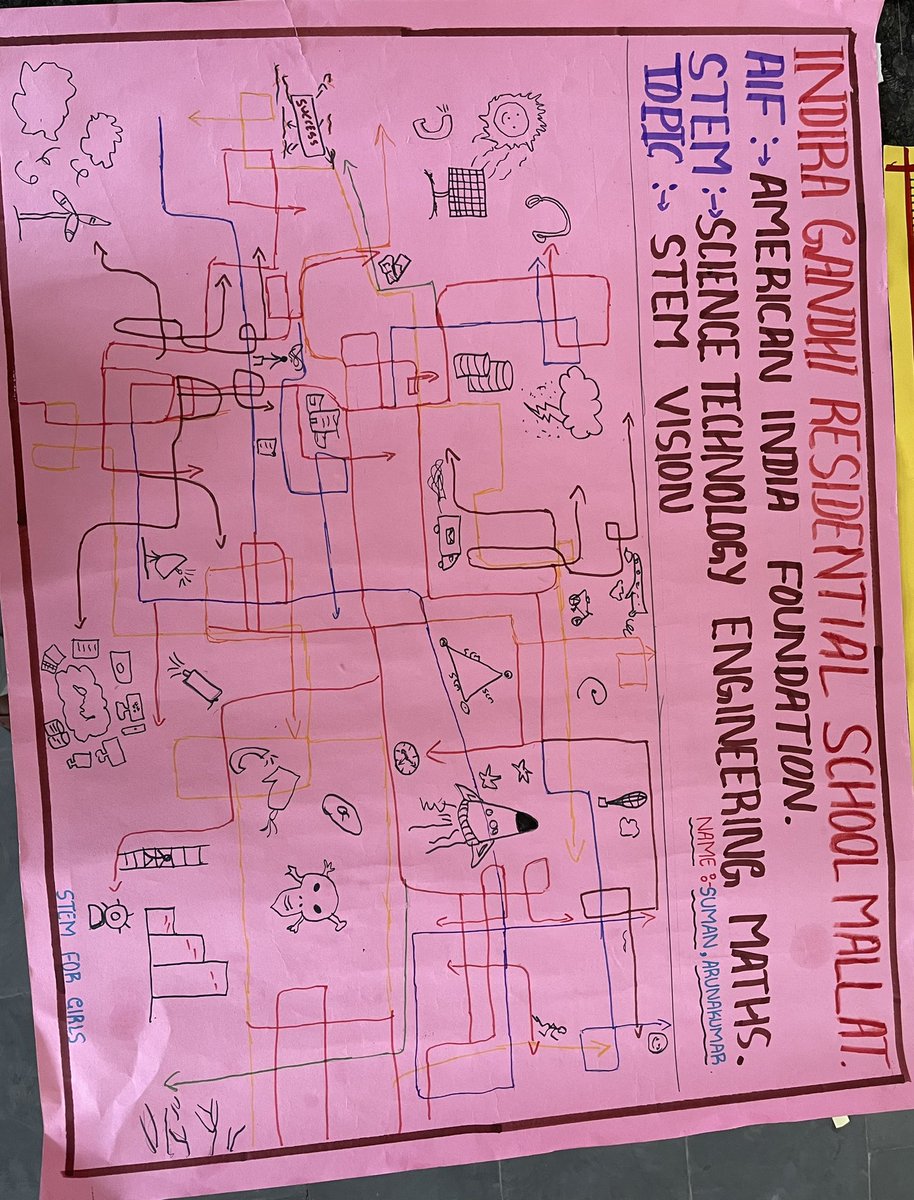 INDIRA GANDHI RESIDENTIAL SCHOOL MALLAT.
AIF :→ AMERICAN INDIA FOUNDATION.
STEM :→ SCIENCE TECHNOLOGY ENGINEERING MATHS.
TOPIC :→ STEM VISION
NAME :- SUMAN, ARUNAKUMAR
SUCCESS
STEM FOR GIRLS